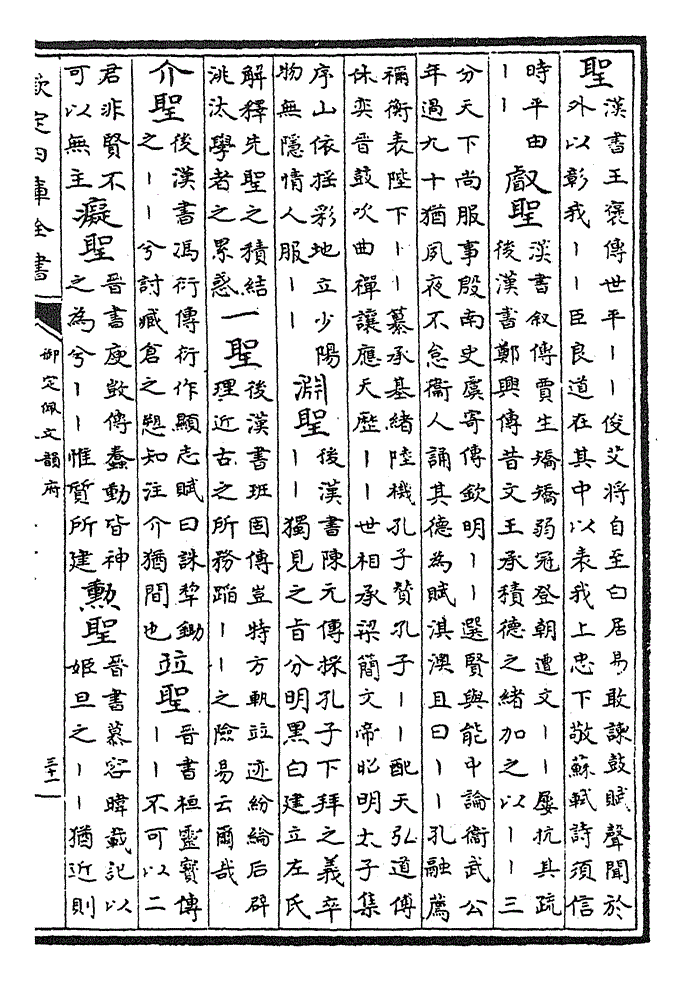 聖
漢書王褒傳世平丨丨俊艾將自至白居易敢諫鼓賦聲聞於
外以彰我丨丨臣良道在其中以表我上忠下敬蘇軾詩須信
時平由
丨丨
叡聖
漢書叙傳賈生矯矯弱冠登朝遭文丨丨屢抗其疏
後漢書鄭興傳昔文王承積德之緒加之以丨丨三
分天下尚服事殷南史虞寄傳欽明丨丨選賢與能中論衞武公
年過九十猶夙夜不怠衞人誦其德為賦淇澳且曰丨丨孔融薦
禰衡表陛下丨丨纂承基緒陸機孔子贊孔子丨丨配天弘道傅
休奕晉鼓吹曲禪讓應天歴丨丨世相承梁簡文帝昭明太子集
序山依揺彩地立少陽
物無隱情人服丨丨
淵聖
後漢書陳元傳採孔子下拜之義卒
丨丨獨見之旨分明黑白建立左氏
解釋先聖之積結
洮汰學者之累惑
一聖
後漢書班固傳豈特方軌竝迹紛綸后辟
理近古之所務蹈丨丨之險易云爾哉
介聖
後漢書馮衍傳衍作顯志賦曰誅犂鋤
之丨丨兮討臧倉之愬知注介猶間也
竝聖
晉書桓靈寶傳
丨丨不可以二
君非賢不
可以無主
癡聖
晉書庾敳傳蠢動皆神
之為兮丨丨惟質所建
勲聖
晉書慕容暐載記以
姬旦之丨丨猶近則
欽定四庫全書
御定佩文韻府